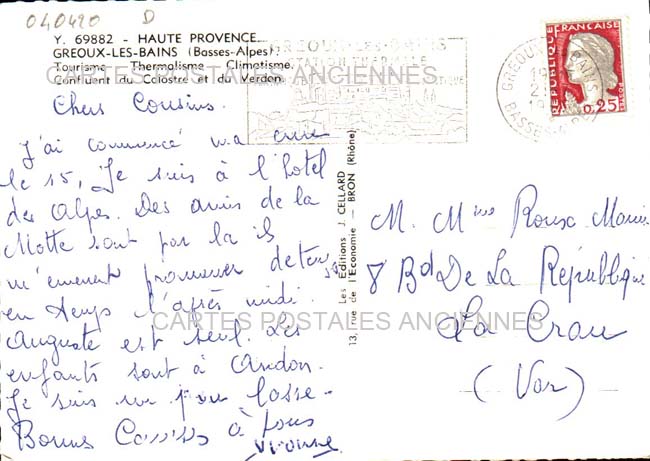 040420 D
Y. 69882 - HAUTE PROVENCE
GREOUX-LES-BAINS (Basses-Alpes)
Tourisme - Thermalisme - Climatisme.
Confluent du Colostre et du Verdon.
GREOUX-LES-BAINS
STATION THERMALE
CARTES POSTALES ANCIENNES
Chers Cousins.
J'ai commencé ma cure
le 15, Je suis à l'hotel
des Alpes. Des amis de la
Motte sont par la ils
m'emennent promener de temps
en temps l'après midi.
Auguste est seul. Les
enfants sont à Andon.
Je suis un peu lasse-
Bonnes à tous
Yvonne
Les Editions J. CELLARD
13, rue de l'Economie - BRON (Rhône)
REPUBLIQUE FRANÇAISE
POSTES
0,25
GREOUX-LES-BAINS
BASSES-ALPES
M. Mme Roux Marius
8 Bd De La République
La Crau
(Var)
CARTES POSTALES ANCIENNES